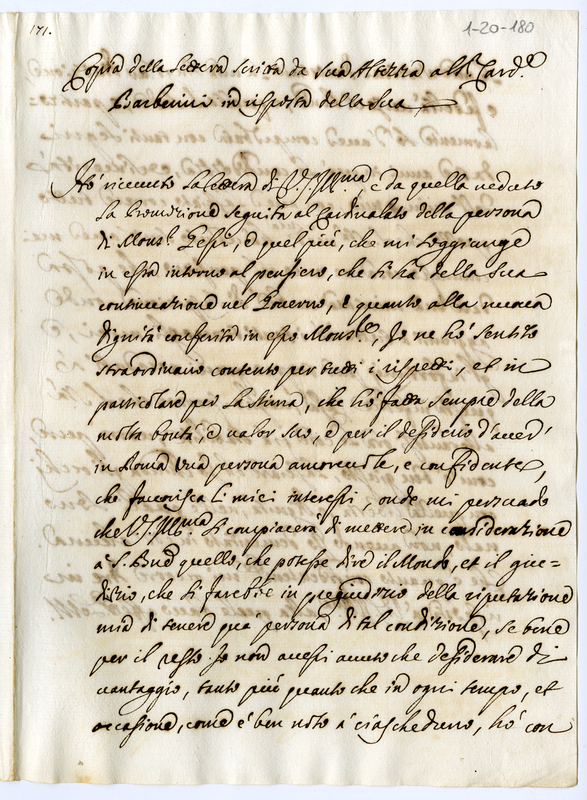 171.
1-20-180
Copia della lettera scritta da Sua Altezza al Sr. Card.le
Barberini in risposta della Sua
Hò riceuuto la lettera di V.S. Ill.ma, e da quella ueduto
la Promozione seguita al Cardinalato della persona
di Mons.r Gessi, e quel più, che mi soggiunge
in essa intorno al pensiero, che si hà della sua
continuazione nel Gouerno, e quanto alla nuoua
dignità conferita in esso Mons.re, Io ne hò sentito
straordinario contento per tutti i rispetti, et in
particolare per la stima, che hò fatta sempre della
molta bontà, e ualor suo, e per il desiderio d'auer
in Roma una persona amoreuole, e confidente,
che fauorisca li miei interessi, onde mi persuado
che V.S. Ill.ma si compiacerà di mettere in considerazione
à S. Bne quello, che potesse dire il Mondo, et il giu=
dizio, che si farebbe in pregiudizio della riputazione
mia di tenere quà persona di tal condizione, se bene
per il resto Io non auessi auuto che desiderare di
uantaggio, tanto più quanto che in ogni tempo, et
occasione, come è ben noto à ciascheduno, hò con